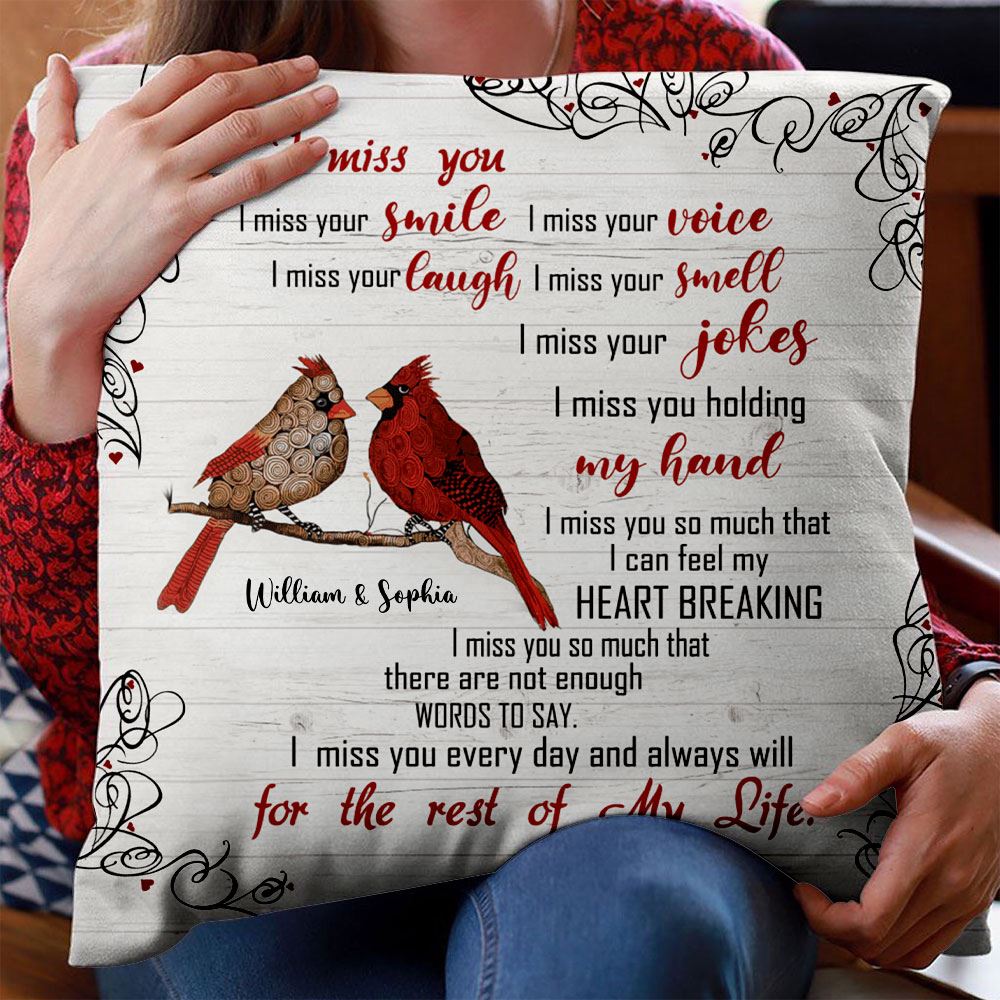 I miss you
I miss your smile I miss your voice
I miss your laugh I miss your smell
I miss your jokes
I miss you holding
my hand
I miss you so much that
I can feel my
HEART BREAKING
William & Sophia
I miss you so much that
there are not enough
WORDS TO SAY.
I miss you every day and always will
for the rest of My Life.